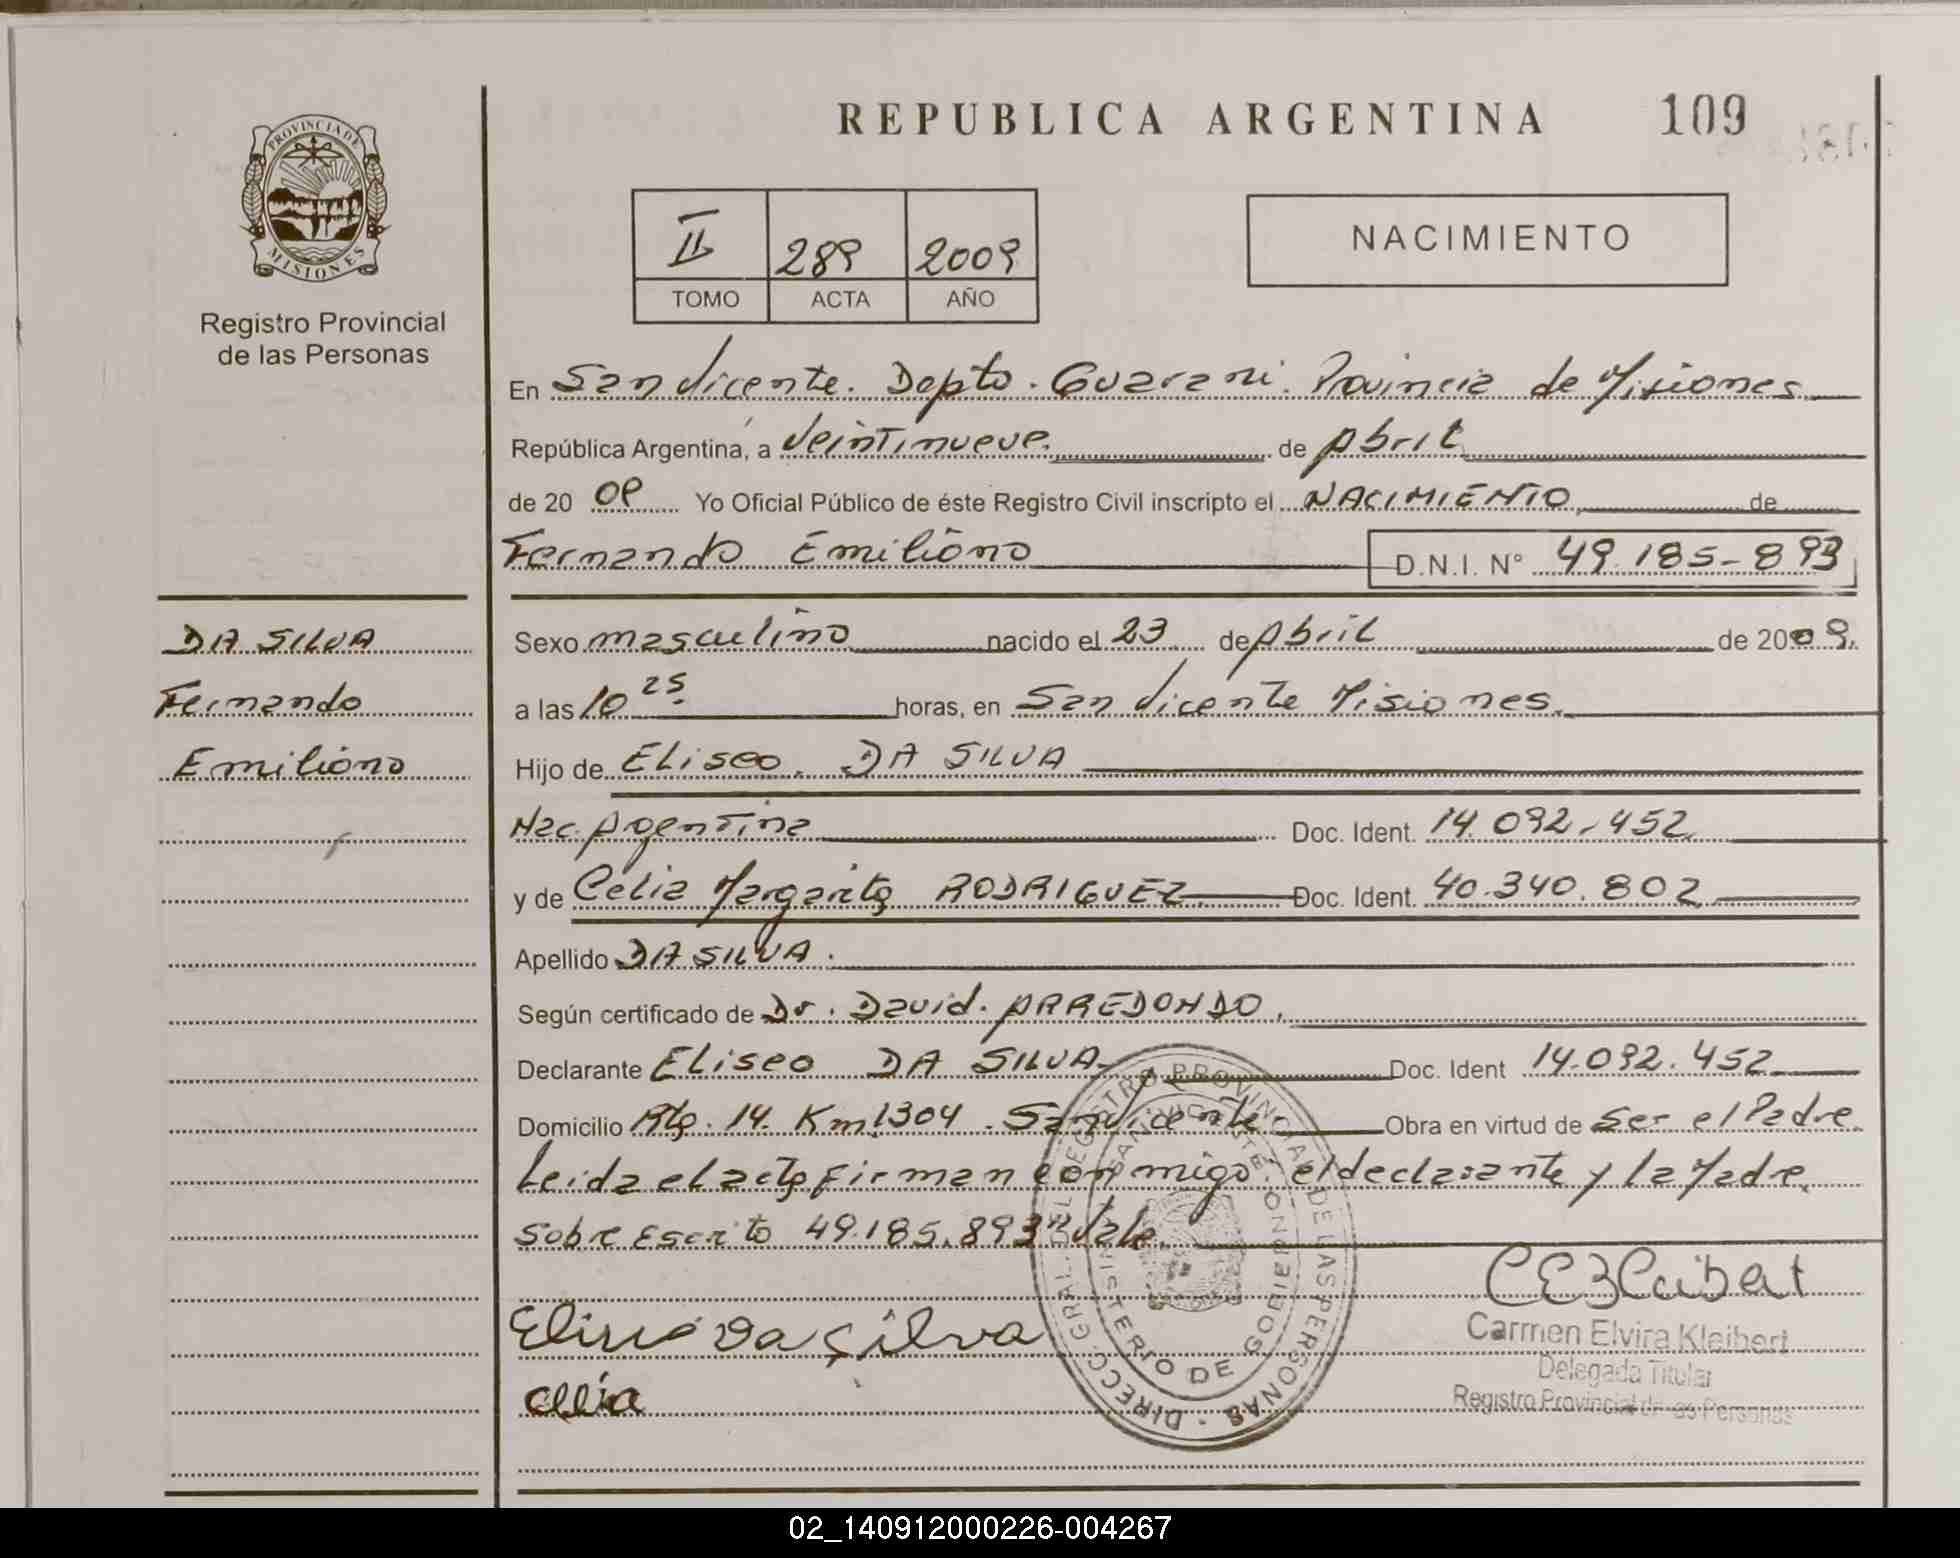 REPUBLICA ARGENTINA 109
PROVINCIA DE
MISIONES
Registro Provincial
de las Personas
II 289 2009
TOMO ACTA AÑO
NACIMIENTO
En San Vicente. Depto. Guarani. Provincia de Misiones
República Argentina, a Veintinueve. de Abril
de 20 09 Yo Oficial Público de éste Registro Civil inscripto el NACIMIENTO de
Fernando Emiliano D.N.I. N° 49.185-893
DA SILVA
Fernando
Emiliano
Sexo masculino nacido el 23 de Abril de 2009.
a las 10 25 horas, en San Vicente Misiones.
Hijo de Eliseo. DA SILVA
Nac. Argentina Doc. Ident. 14.092.452
y de Celia Margarita RODRIGUEZ Doc. Ident. 40.340.802
Apellido DA SILVA.
Según certificado de Dr. David. ARREDONDO.
Declarante Eliseo DA SILVA Doc. Ident 14.092.452
Domicilio Rta. 14. Km 1304. San Vicente Obra en virtud de ser el Padre.
Leida el acta firman conmigo: el declarante y la Madre.
Sobre Escrito 49.185.893" Vale.
DIRECC. GRAL. DEL REGISTRO PROVINCIAL DE LAS PERSONAS
SAN VICENTE
MINISTERIO DE GOBIERNO
Eliseo Da Silva
celia
Carmen Elvira Kleibert
Delegada Titular
Registro Provincial de las Personas
02_140912000226-004267